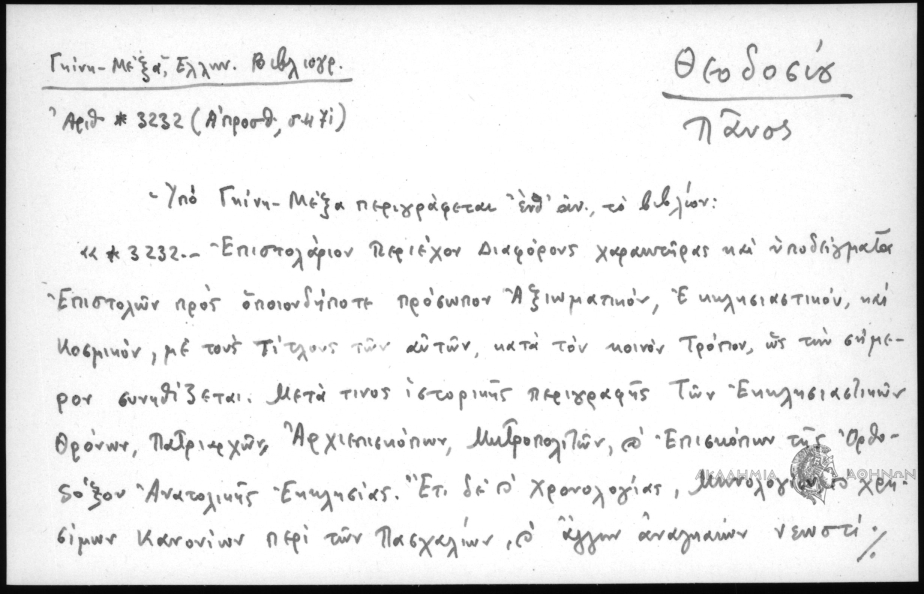 Γκίνη-Μέξα, Ελλην. Βιβλιογρ.
Θεοδοσίου
Ἀριθ * 3232 (Α΄προσθ, σ471)
Πᾶνος
- Ὑπὸ Γκίνη-Μέξα περιγράφεται ἐνθ' ἀν., τὸ βιβλίον:
«* 3232.- Ἐπιστολάριον Περιέχον Διαφόρους χαρακτῆρας καὶ ὑποδείγματα
Ἐπιστολῶν πρὸς ὁποιονδήποτε πρόσωπον Ἀξιωματικόν, Ἐκκλησιαστικόν, καὶ
Κοσμικόν, μὲ τοὺς Τίτλους τῶν αὐτῶν, κατὰ τὸν κοινὸν Τρόπον, ὡς τὴν σήμε-
ρον συνηθίζεται. Μετά τινος ἱστορικῆς περιγραφῆς Τῶν Ἐκκλησιαστικῶν
Θρόνων, Πατριαρχῶν, Ἀρχιεπισκόπων, Μητροπολιτῶν, ϗ Ἐπισκόπων τῆς Ὀρθο-
δόξου Ἀνατολικῆς Ἐκκλησίας. Ἔτι δὲ ϗ Χρονολογίας, Μηνολογίου ϗ χρη-
σίμων Κανονίων περὶ τῶν Πασχαλίων, ϗ ἄλλων ἀναγκαίων νεωστὶ ./.
ΑΚΑΔΗΜΙΑ ΑΘΗΝΩΝ